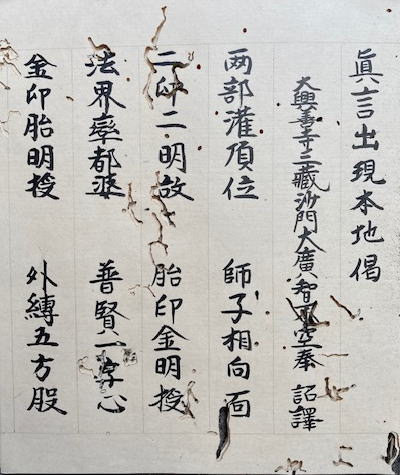 眞言出現本地偈
大興善寺三藏沙門大廣智不空奉 詔譯
两部灌頂位 師子相向面
二印二明故 胎印金明授
法界率都婆 普賢一字心
金印胎明授 外縛五方股